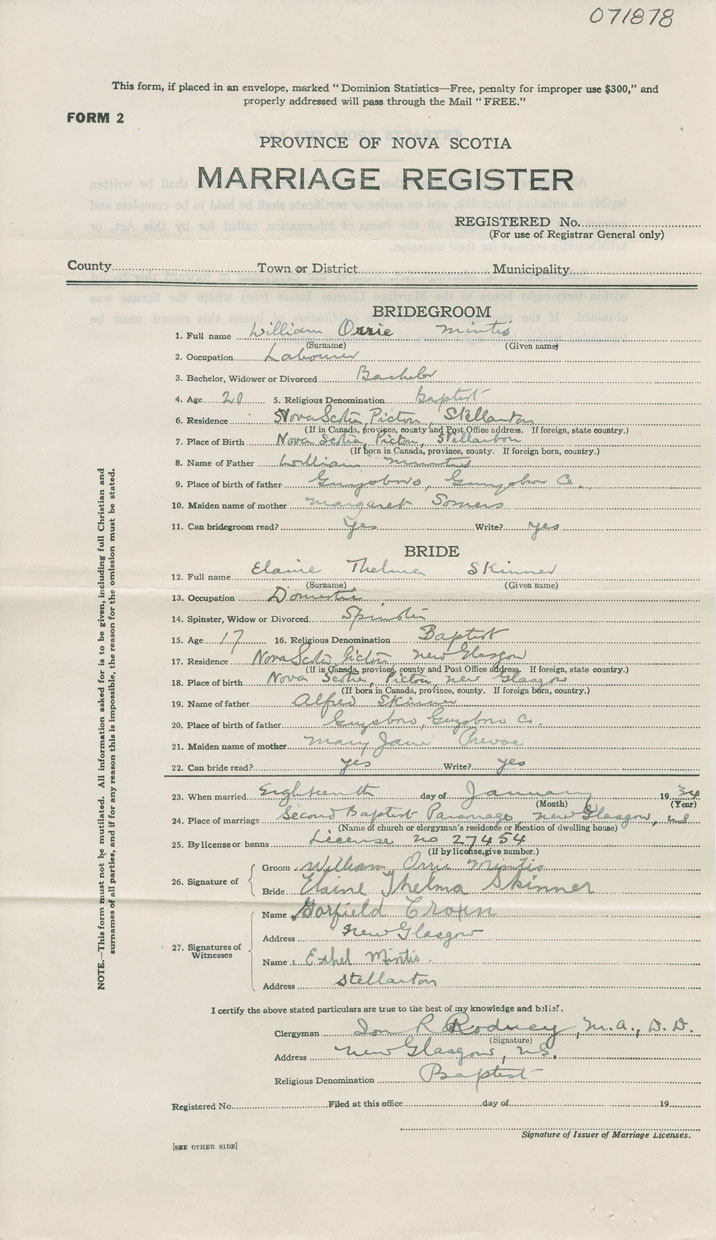 071878
This form, if placed in an envelope, marked "Dominion Statistics—Free, penalty for improper use $300," and
properly addressed will pass through the Mail "FREE."
FORM 2
PROVINCE OF NOVA SCOTIA
MARRIAGE REGISTER
REGISTERED No.
(For use of Registrar General only)
County Town or District Municipality
BRIDEGROOM
1. Full name William Orrie Mintis
(Surname) (Given name)
2. Occupation Labourer
3. Bachelor, Widower or Divorced Bachelor
4. Age 20 5. Religious Denomination Baptist
6. Residence Nova Scotia, Pictou, Stellarton
(If in Canada, province, county and Post Office address. If foreign, state country.)
7. Place of Birth Nova Scotia, Pictou, Stellarton
(If born in Canada, province, county. If foreign born, country.)
8. Name of Father William Mintis
9. Place of birth of father Guysboro, Guysboro Co.
10. Maiden name of mother Margaret Somers
11. Can bridegroom read? Yes Write? Yes
BRIDE
12. Full name Elaine Thelma Skinner
(Surname) (Given name)
13. Occupation Domestic
14. Spinster, Widow or Divorced Spinster
15. Age 17 16. Religious Denomination Baptist
17. Residence Nova Scotia, Pictou, New Glasgow
(If in Canada, province, county and Post Office address. If foreign, state country.)
18. Place of birth Nova Scotia, Pictou, New Glasgow
(If born in Canada, province, county. If foreign born, country.)
19. Name of father Alfred Skinner
20. Place of birth of father Guysboro, Guysboro Co.
21. Maiden name of mother Mary Jane
22. Can bride read? yes Write? yes
23. When married Eighteenth day of January 19 34
(Month) (Year)
24. Place of marriage Second Baptist Parsonage, New Glasgow,
(Name of church or clergyman's residence or location of dwelling house)
25. By license or banns License no 27454
(If by license, give number.)
26. Signature of
Groom William Orrie Mintis
Bride Elaine Thelma Skinner
27. Signatures of Witnesses
Name Garfield
Address New Glasgow
Name Ethel Mintis
Address Stellarton
I certify the above stated particulars are true to the best of my knowledge and belief.
Clergyman R Rodney, M.A., D.D.
(Signature)
Address New Glasgow, N.S.
Religious Denomination Baptist
Registered No. Filed at this office day of 19
Signature of Issuer of Marriage Licenses.
[SEE OTHER SIDE]
NOTE.—This form must not be mutilated. All information asked for is to be given, including full Christian and
surnames of all parties, and if for any reason this is impossible, the reason for the omission must be stated.